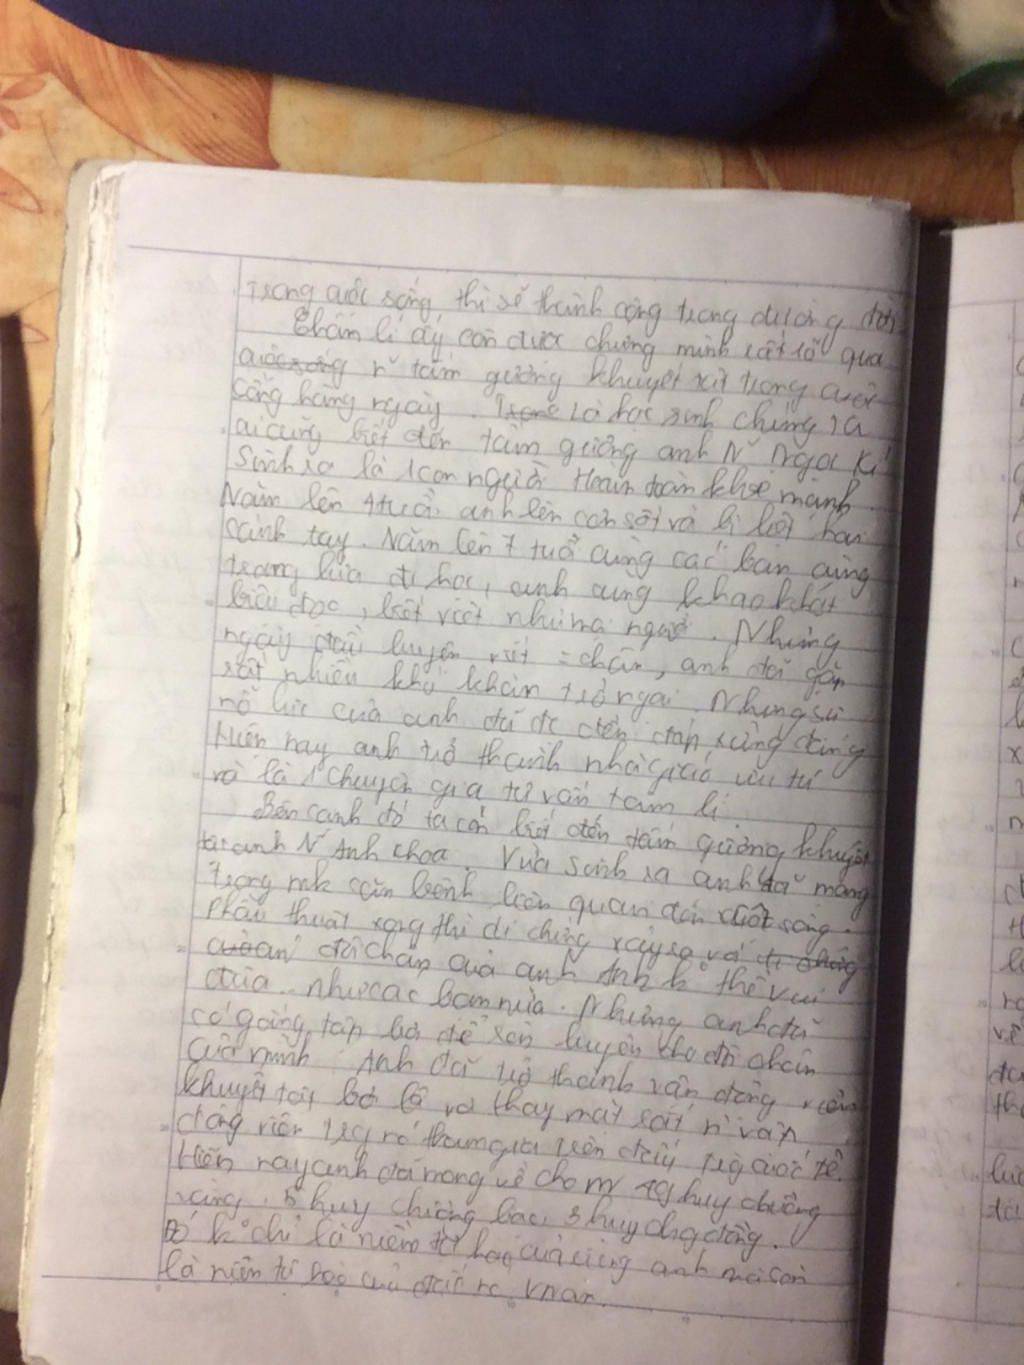 trong cuộc sống thì sẽ thành công trong đường đời
Chân lí ấy còn được chứng minh rất rõ qua
n~ tấm gương khuyết tật trong cuộc
sống hàng ngày. Là học sinh chúng ta
ai cũng biết đến tấm gương anh N~ Ngọc Kí
Sinh ra là 1 con người hoàn toàn khỏe mạnh.
Năm lên 4 tuổi anh lên cơn sốt và bị liệt hai
cánh tay. Năm lên 7 tuổi cùng các bạn cùng
trang lứa đi học, anh cũng khao khát
biết đọc, biết viết như mọi người. Nhưng
ngày đầu luyện viết = chân, anh đã gặp
rất nhiều khó khăn trở ngại. Nhưng sự
nỗ lực của anh đã đc đền đáp xứng đáng
Hiện nay anh trở thành nhà giáo ưu tú
và là 1 chuyên gia tư vấn tâm lí.
Bên cạnh đó ta còn biết đến tấm gương khuyết
tật anh N~ Anh Khoa. Vừa sinh ra anh đã mang
trong mk căn bệnh liên quan đến cột sống.
Phẫu thuật xong thì di chứng xảy ra với
đôi chân của anh. Anh k thể vui
đùa như các bạn nữa. Nhưng anh đã
cố gắng tập bơi để rèn luyện cho đôi chân
của mình. Anh đã trở thành vận động viên
khuyết tật bơi lội và thay mặt rất n` vận
động viên trg nc tham gia trên đấu trg quốc tế.
Hiện nay anh đã mang về cho m 49 huy chương
vàng, 5 huy chương bạc, 3 huy chg đồng.
Đó k chỉ là niềm tự hào của riêng anh mà còn
là niềm tự hào của đất nc VNam.